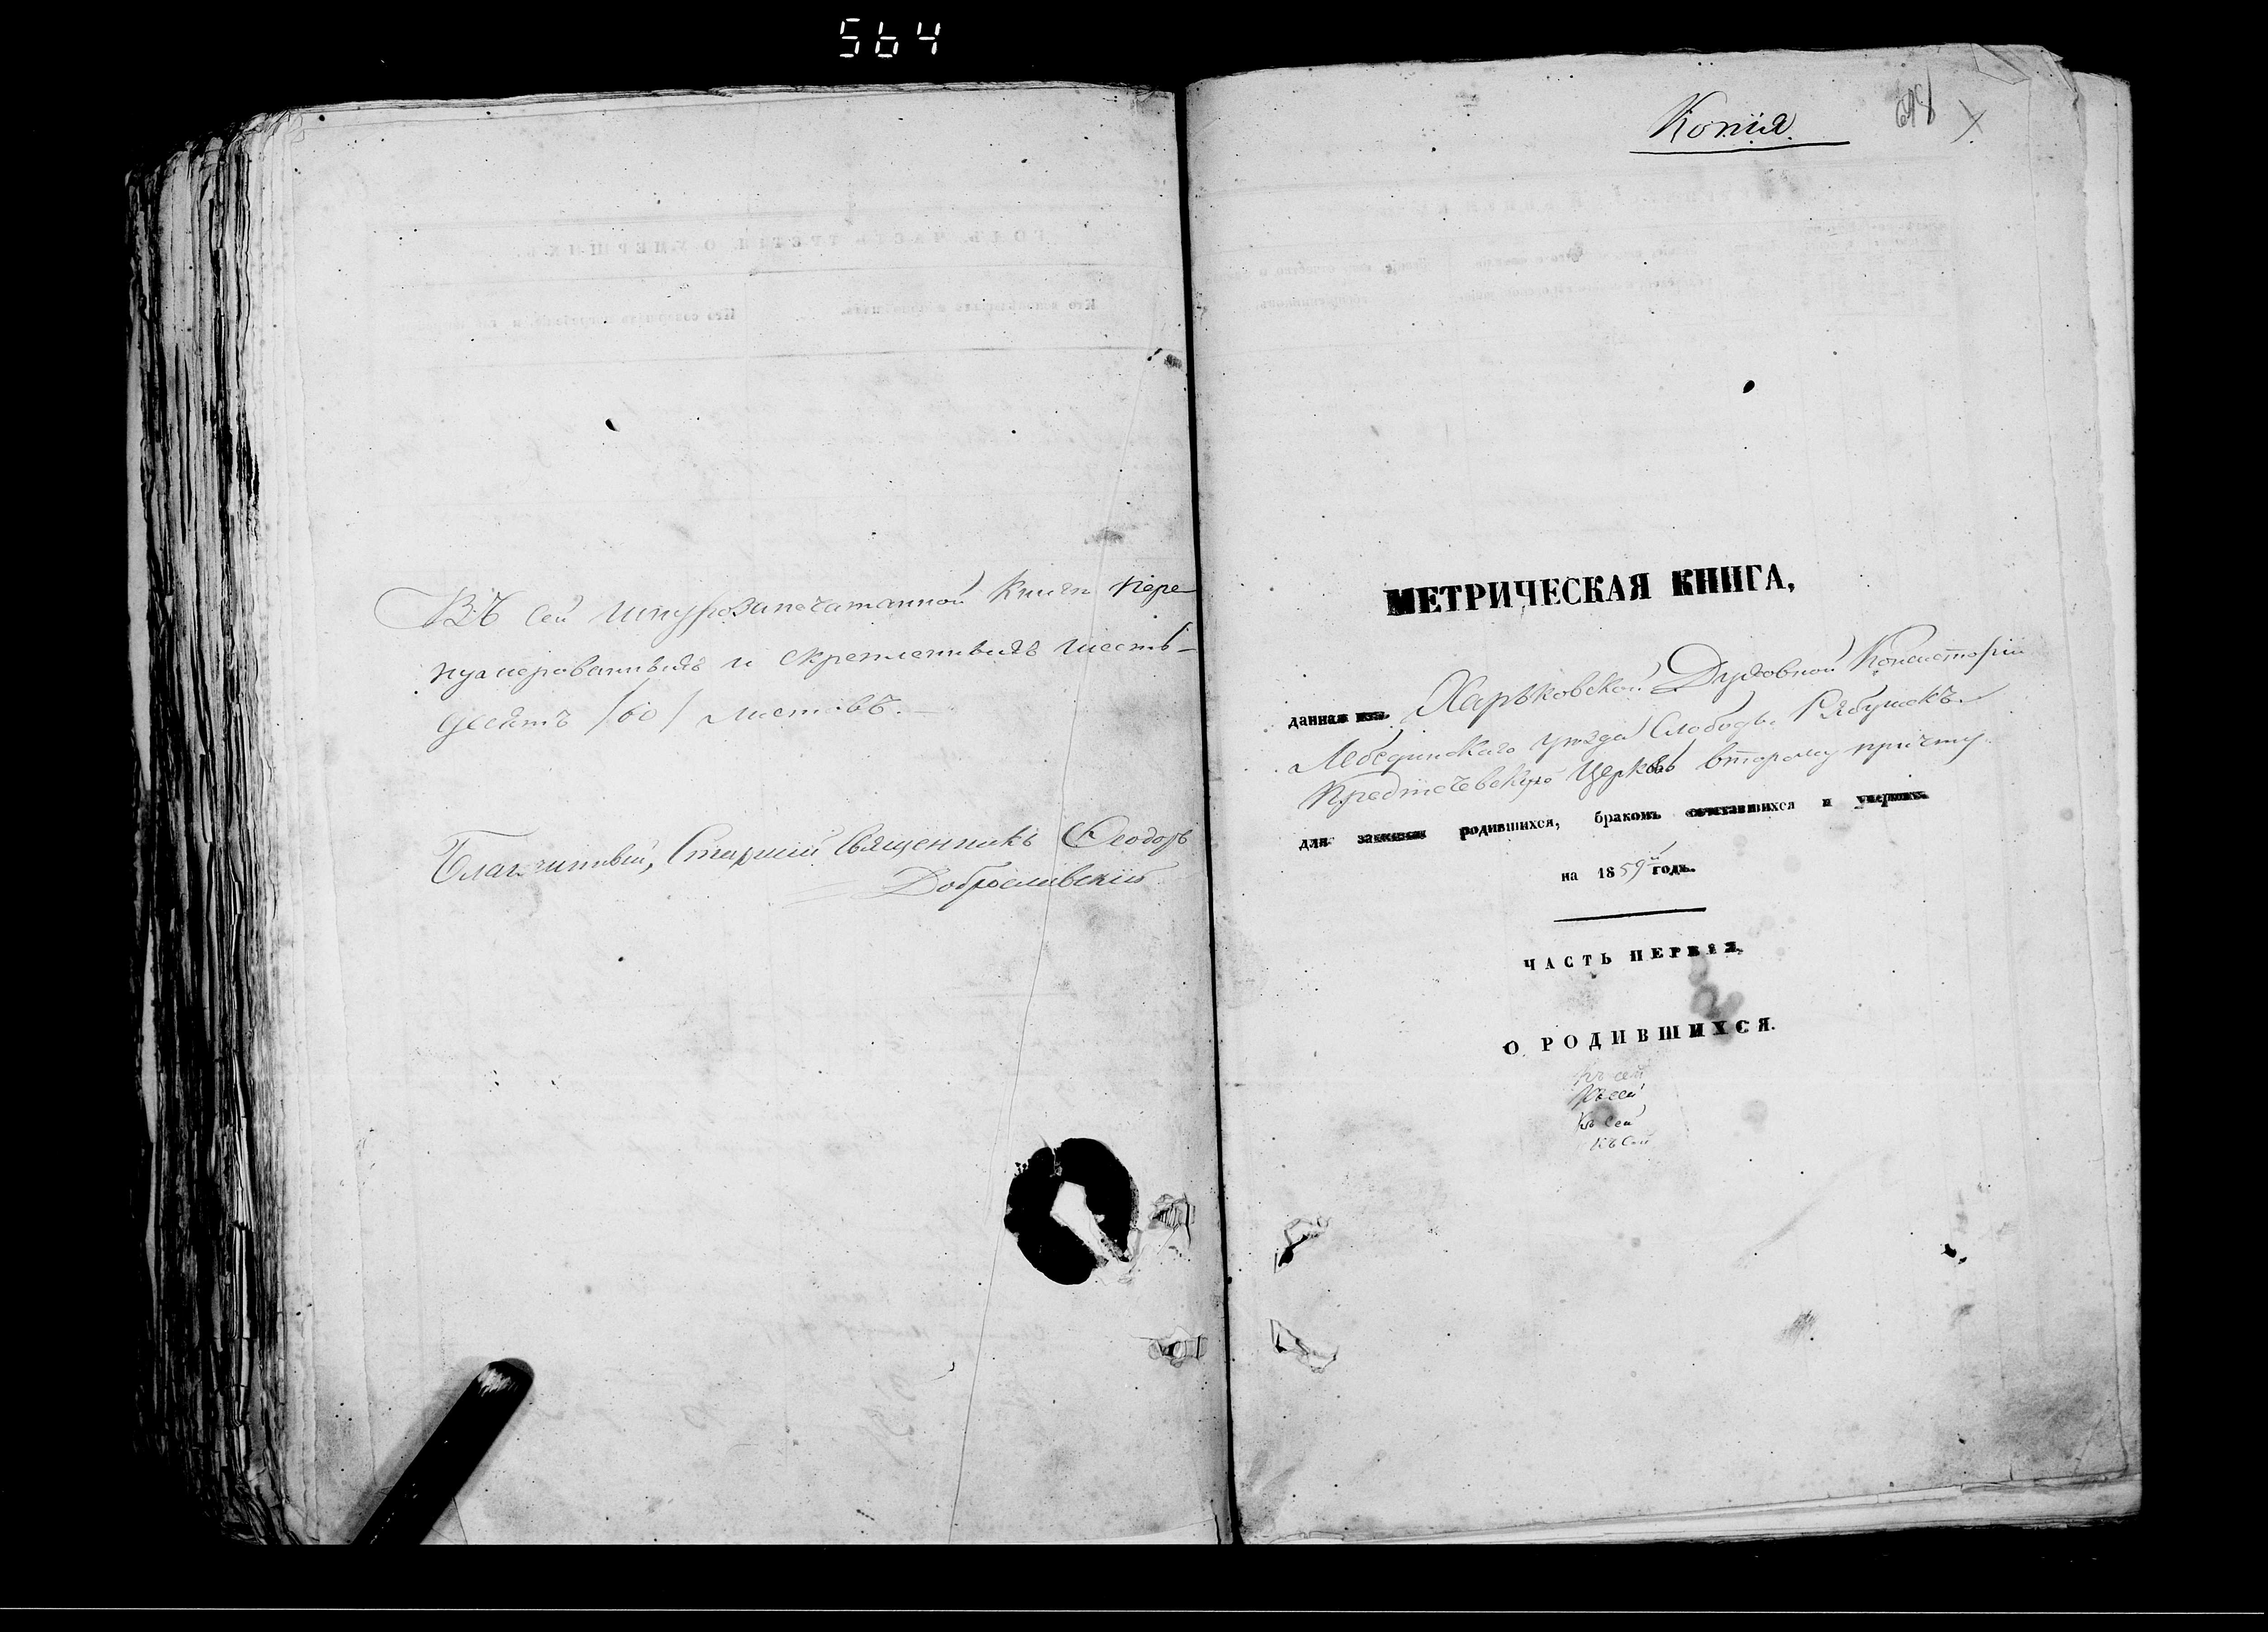 564
Въ сей шнурозапечатанной Книги пере
нумерованныхъ и скрепленныхъ шесть-
десятъ /60/ листовъ.
Благочинный, Старший Священникъ Ѳеодоръ
Доброславский
Копія.
МЕТРИЧЕСКАЯ КНИГА,
данная изъ Харьковской Духовной Консисторіи
Лебединскаго уезда Слободы Рябушекъ
Предтечевскую Церковь второму причту
для записки родившихся, бракомъ сочетавшихся и умершихъ
на 1859й годъ.
ЧАСТЬ ПЕРВАЯ,
О РОДИВШИХСЯ.
Къ сей
Къ сей
Къ Сей
Къ Сей